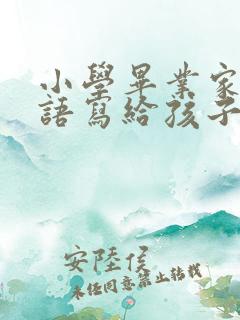 小學畢業家
語寫給孩子
安陸侯
未經同意禁止轉載